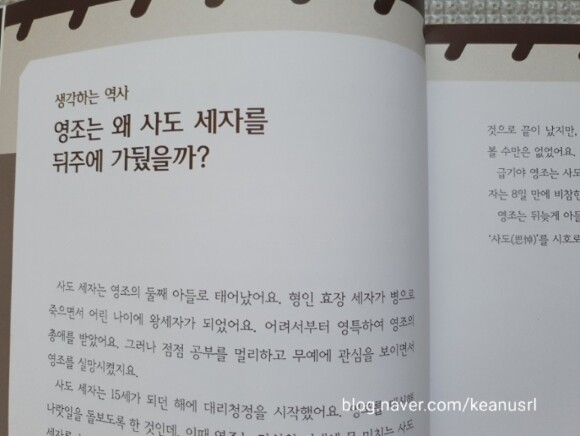 생각하는 역사
영조는 왜 사도 세자를
뒤주에 가뒀을까?
사도 세자는 영조의 둘째 아들로 태어났어요. 형인 효장 세자가 병으로
죽으면서 어린 나이에 왕세자가 되었어요. 어려서부터 영특하여 영조의
총애를 받았어요. 그러나 점점 공부를 멀리하고 무예에 관심을 보이면서
영조를 실망시켰지요.
사도 세자는 15세가 되던 해에 대리청정을 시작했어요.
나랏일을 돌보도록 한 것인데, 이때
것으로 끝이 났지만,
볼 수만은 없었어요.
급기야 영조는 사도
자는 8일 만에 비참한
영조는 뒤늦게 아들
'사도(思悼)'를 시호로
blog.naver.com/keanusrl